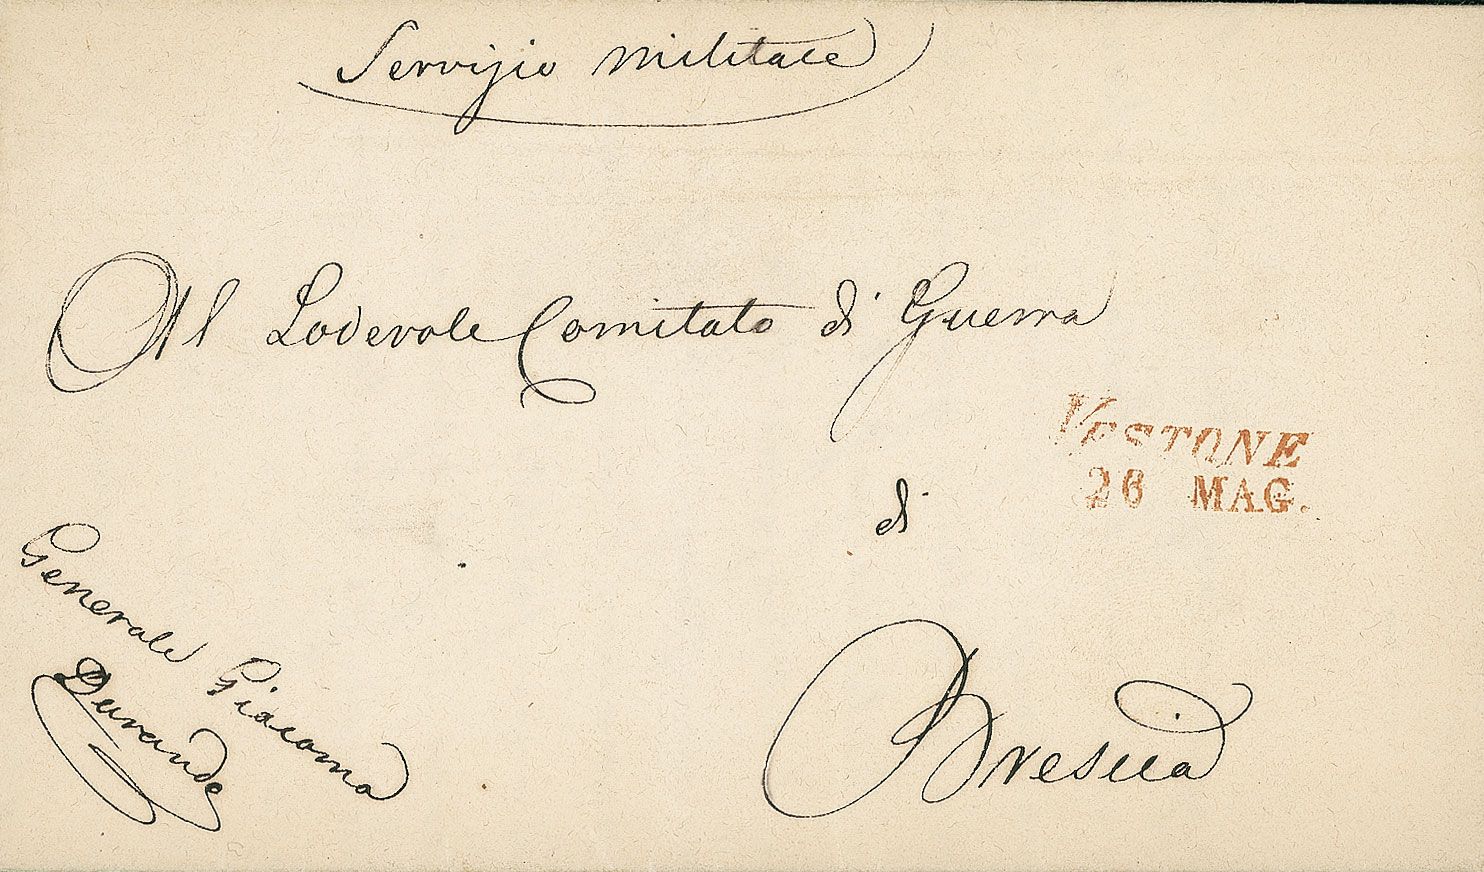 Servizio militare
Al Lodevole Comitato di Guerra
VESTONE
26 MAG.
di
Brescia
Generale Giacomo
Durando